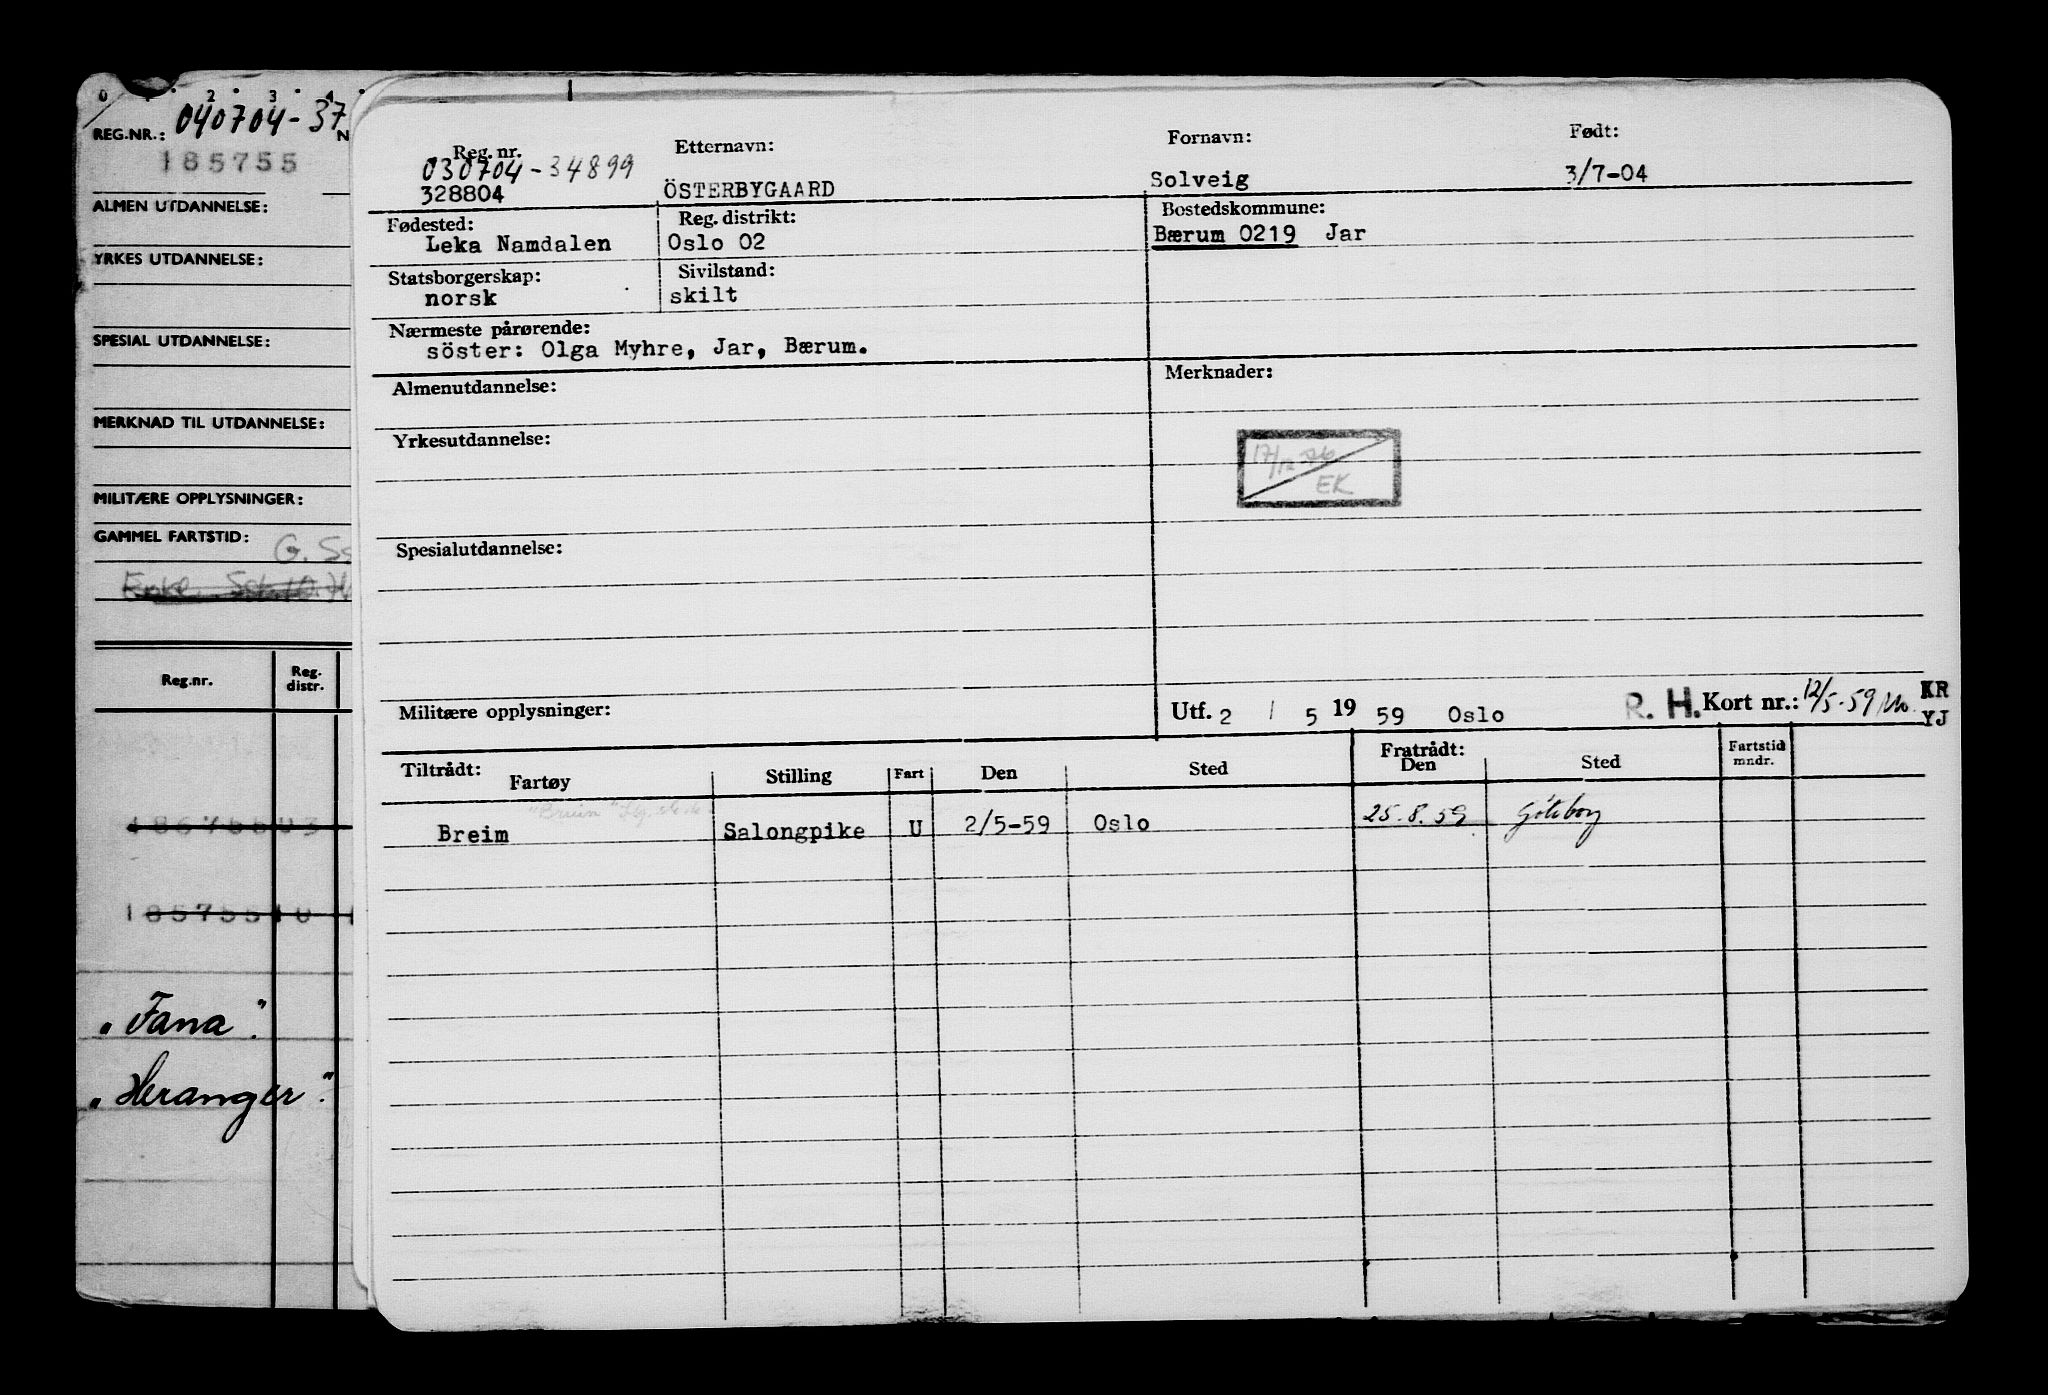 0 1 2 3 4
REG.NR.: 040704-37
N
185755
ALMEN UTDANNELSE:
YRKES UTDANNELSE:
SPESIAL UTDANNELSE:
MERKNAD TIL UTDANNELSE:
MILITÆRE OPPLYSNINGER:
GAMMEL FARTSTID:
G.
Reg.nr. Reg. distr.
185755 03
185755 10
"Fana".
"Heranger".
Reg. nr. Etternavn: Fornavn: Født:
030704-34899
328804 ÖSTERBYGAARD Solveig 3/7-04
Fødested: Reg. distrikt: Bostedskommune:
Leka Namdalen Oslo 02 Bærum 0219 Jar
Statsborgerskap: Sivilstand:
norsk skilt
Nærmeste pårørende:
söster: Olga Myhre, Jar, Bærum.
Almenutdannelse: Merknader:
Yrkesutdannelse:
17/12 76
EK
Spesialutdannelse:
Militære opplysninger: Utf. 2 / 5 19 59 Oslo R. H. Kort nr.: 12/5-59 KR
YJ
Tiltrådt: Fartøy Stilling Fart Den Sted Fratrådt: Den Sted Fartstid mndr.
"Breim"
Breim Salongpike U 2/5-59 Oslo 25.8.59 Göteborg